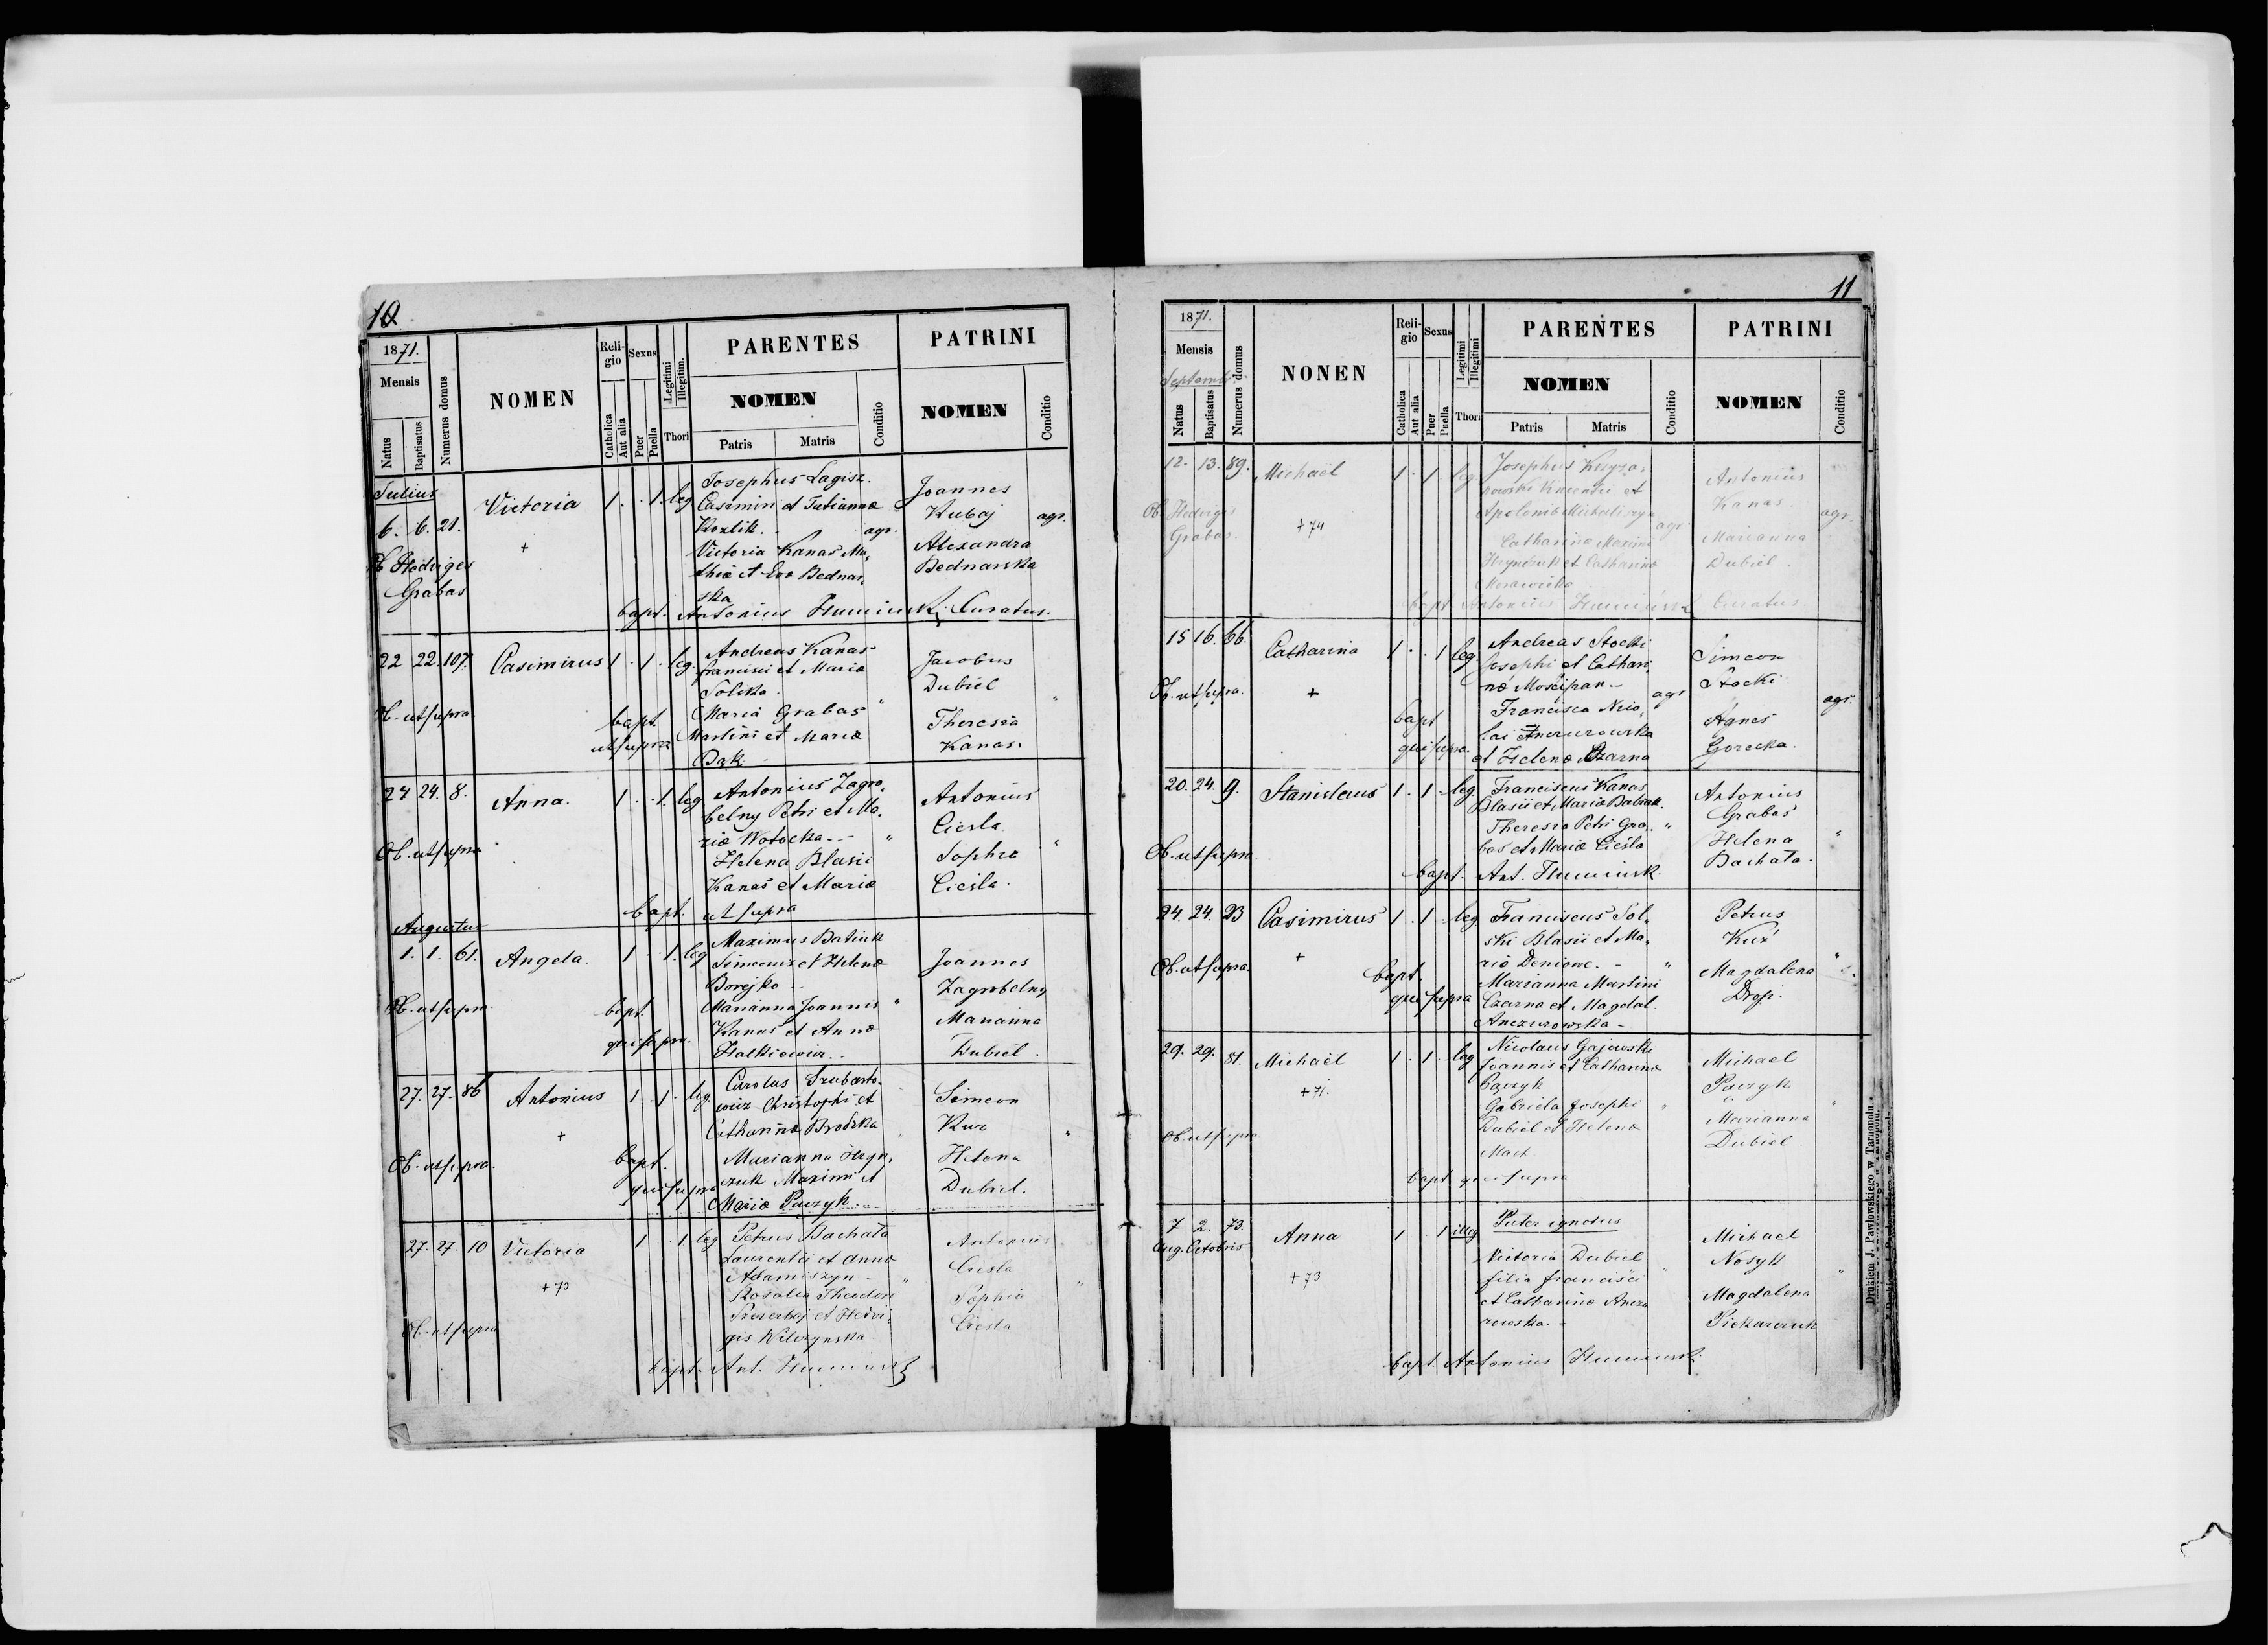 10
1871.
Mensis
Natus
Baptisatus
Numerus domus
NOMEN
Reli-
gio
Catholica
Aut alia
Sexus
Puer
Puella
Legitimi
Illegitim.
Thori
PARENTES
NOMEN
Patris
Matris
Conditio
PATRINI
NOMEN
Conditio
Julius
6. 6. 21. Victoria 1 . . 1. leg
+
Hedviges
Grabas
Josephus Lagisz.
Casimiri et Julianna
Kozlik. agr.
Victoria Kanas Ma,
thia et Eva Bednar,
ska
Joannes
Kubaj agr.
Alexandra
Bednarska
bapt. Antonius Curatus.
22 22. 107. Casimirus 1 . 1 . leg.
Ob. ut supra.
bapt.
ut supra
Andreas Kanas
francisci et Maria
Solska. "
Maria Grabas
Martini et Maria
Bąk
Jacobus
Dubiel "
Theresia
Kanas.
24 24. 8. Anna. 1 . . 1. leg
Ob. ut supra
Antonius Zagro,
belny Petri et Ma,
ria Wotocka "
Helena Blasii
Kanas et Maria
Antonius
Ciesla "
Sophia
Cieśla.
bapt. ut supra
Augustus
1. 1. 61. Angela. 1 . . 1. leg
Ob. ut supra
bapt.
qui supra.
Maximus Batiuk
et Helena
Borejko
Marianna Joannis "
Kanas et Anna
Joannes
Zagrobelny
Marianna
Dubiel.
27. 27. 86 Antonius 1 . 1 . leg.
+
Ob. ut supra.
bapt.
qui supra
Carolus
Christophi et
Catharina Brodzka
Marianna Hryn,
czuk Maximi et
Maria Paczyk
Simeon
Kuz "
Helena
Dubiel.
27. 27. 10 Victoria 1 . . 1 leg
+ 73
Ob. ut supra
Petrus Bachata
Laurentii et Anna
Adamiszyn "
Rosalia Theodori
et Hedvi,
gis Wilczynska
Antonius
Ciesla
Sophia "
Ciesla
bapt. Ant.
11
1871.
Mensis
Septemb.
Natus
Baptisatus
Numerus domus
NONEN
Reli-
gio
Catholica
Aut alia
Sexus
Puer
Puella
Legitimi
Illegitimi
Thori
PARENTES
NOMEN
Patris
Matris
Conditio
PATRINI
NOMEN
Conditio
12. 13. 89. Michael 1 . 1 . leg
+ 74
Ob. Hedviges
Grabas.
Josephus Kryza,
nowski et
Apolonia agr.
Catharina Maximi
et Catharina
Antonius
Kanas. agr.
Marianna
Dubiel
bapt. Antonius Curatus
15 16. 66. Catharina 1 . . 1 leg.
+
Ob. ut supra.
bapt
qui supra.
Andreas Stocki
Josephi et Cathari,
na Mościpan. agr
Francisca Nico,
lai
et Helena Czarna
Simeon
Stocki agr.
Agnes
Gorecka.
20. 24. 9. Stanislaus 1 . 1 . leg.
Ob. ut supra.
Franciscus Kanas
Blasii et Maria
Theresia Petri Gra, "
bas et Maria Cieśla
Antonius
Grabas
Helena "
Bachata.
bapt. Ant.
24. 24. 23 Casimirus 1 . 1 . leg.
+
Ob. ut supra.
bapt.
qui supra
Franciscus Sol,
ski Blasii et Ma,
ria "
Marianna Martini
Czarna et Magdal.
Petrus
Kuź
Magdalena "
29. 29. 81. Michaël 1 . 1 . leg
+ 71.
Ob. ut supra
Nicolaus Gajowski
Joannis et Catharina
Paczyk
Gabriela Josephi "
Dubiel et Helena
Michael
Paczyk
Marianna "
Dubiel
bapt qui supra
7 2. 73. Anna 1 . 1 illeg
Aug. Octobris
+ 73
Pater ignotus
Victoria Dubiel
filia francisci "
et Catharina
Michael
Nosyk
Magdalena "
bapt. Antonius
Drukiem J. Pawłowskiego w Tarnopolu.